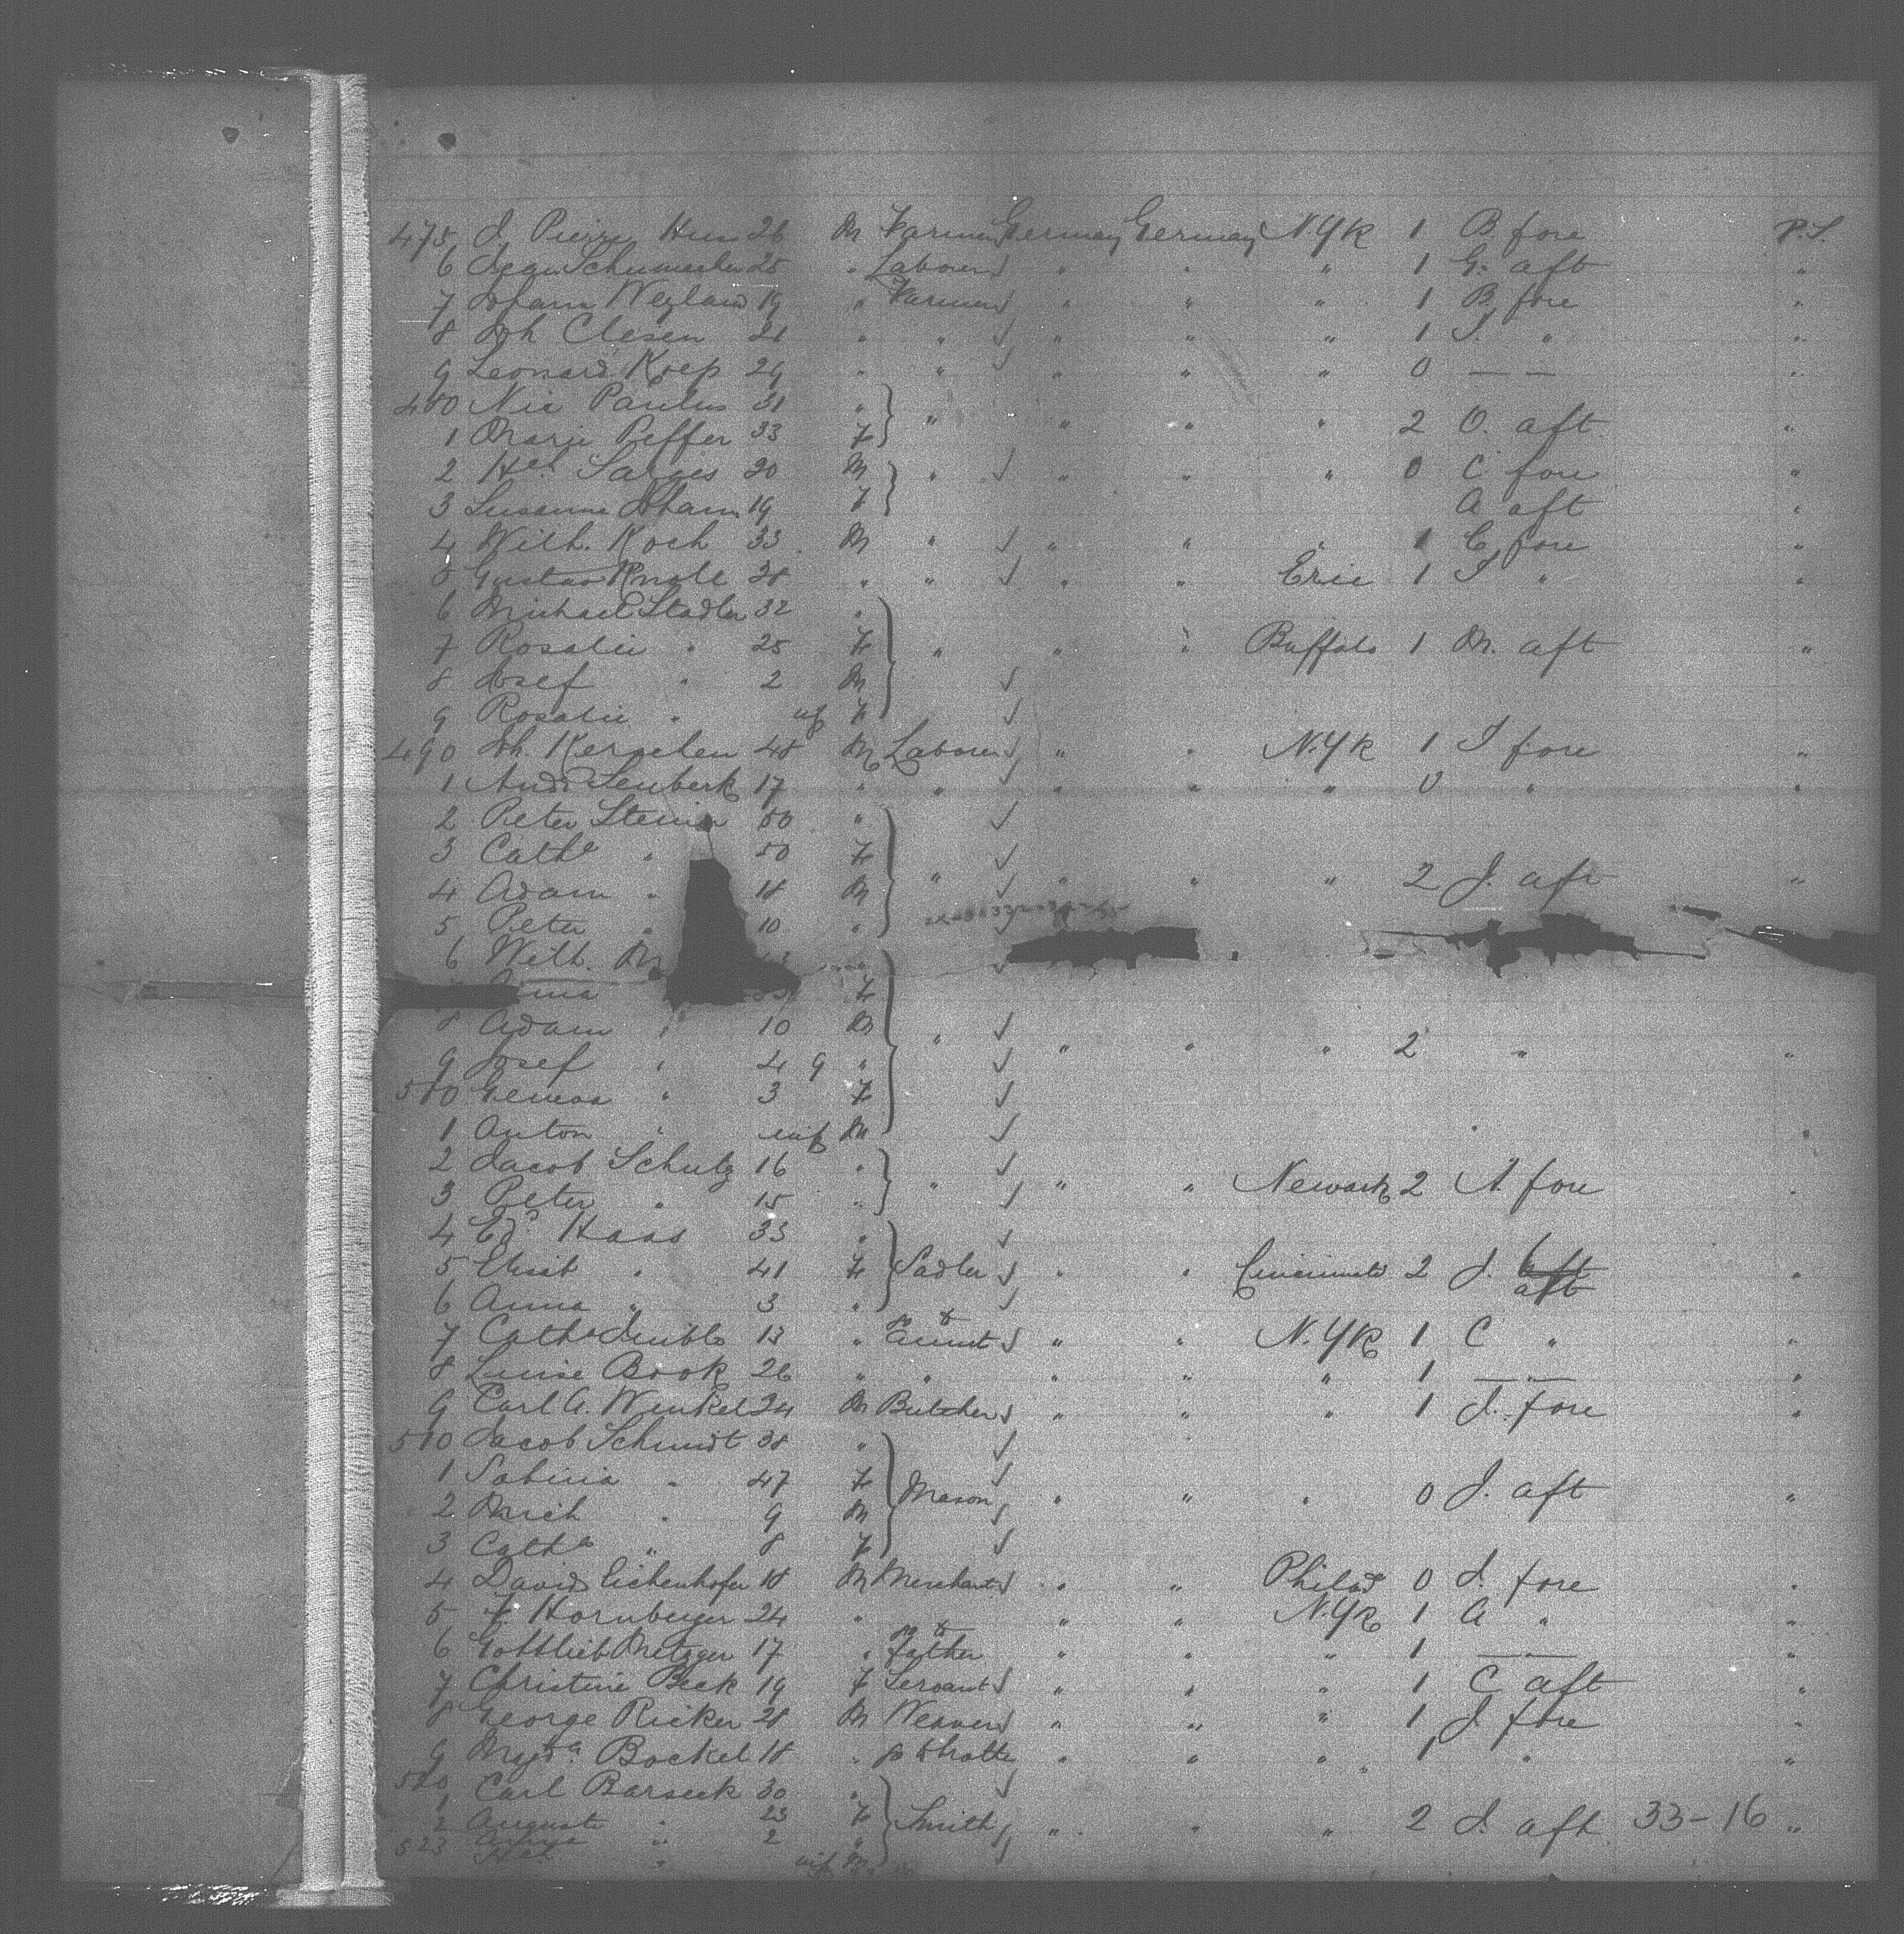 475 J. Pierre Hess 26 M Farmer Germany Germany N.Yk 1 B. fore P.S.
6 Jean Schumacher 25 " Laborer " " " 1 G. aft "
7 Johann Weyland 19 " Farmer " " " 1 B. fore "
8 Joh Clesen 21 " " " " " 1 S. " "
9 Leonard Koep 29 " " " " " 0 — — "
480 Nic Paulus 31 " " " " " 2 O. aft "
1 Marie Peffer 33 F
2 Hch Sarges 20 M " " " " 0 C fore "
3 Susanne Johann 19 F A aft "
4 Wilh. Koch 33 M " " " " 1 C fore "
5 Gustav Knoll 28 " " " " Erie 1 S " "
6 Michael Stadler 32 "
7 Rosalie " 25 F " " " Buffalo 1 M. aft "
8 Josef " 2 M
9 Rosalie " inf F
490 Joh. Kergelen 48 M Laborer " " N.Yk 1 S fore "
1 And. Leuberk 17 " " " " " 0 " "
2 Peter Stein 50 "
3 Cathe " 50 F
4 Adam " 18 M " " " " 2 J. aft "
5 Peter " 10 "
6 Wilh. M
F
8 Adam " 10 M " " " " 2 " "
9 Josef " 4 9 "
500 Genova " 3 F
1 Anton " inf M
2 Jacob Schutz 16 " " " " Newark 2 A. fore "
3 Peter " 15 "
4 Ed. Haas 33 "
5 Elisab " 41 F Sadler " " Cincinnati 2 J. aft "
6 Anna " 3 "
7 Cathe 13 " to Aunt " " N.Yk 1 C " "
8 Luise Book 26 " " " " " 1 — " — "
9 Carl A. Wenkel 24 M Butcher " " " 1 J. fore "
510 Jacob Schmidt 38 "
1 Sabina " 47 F Mason " " " 0 J. aft "
2 Mich " 9 M
3 Cathe " 8 F
4 David Eichenhofer 18 M Merchant " " Philad 0 J. fore "
5 F Hornberger 24 " " " N.Yk 1 A " "
6 Gottlieb Metzger 17 " to father " " " 1 — — "
7 Christine Beck 19 F Servant " " " 1 C aft "
8 George Ricker 28 M Weaver " " " 1 J. fore "
9 Magda. Bockel 18 " " " " 1 " "
520 Carl Barseck 30 "
1
2 Auguste " 23 F Smith " " " 2 J. aft. 33-16 "
" 2 "
523 " inf M